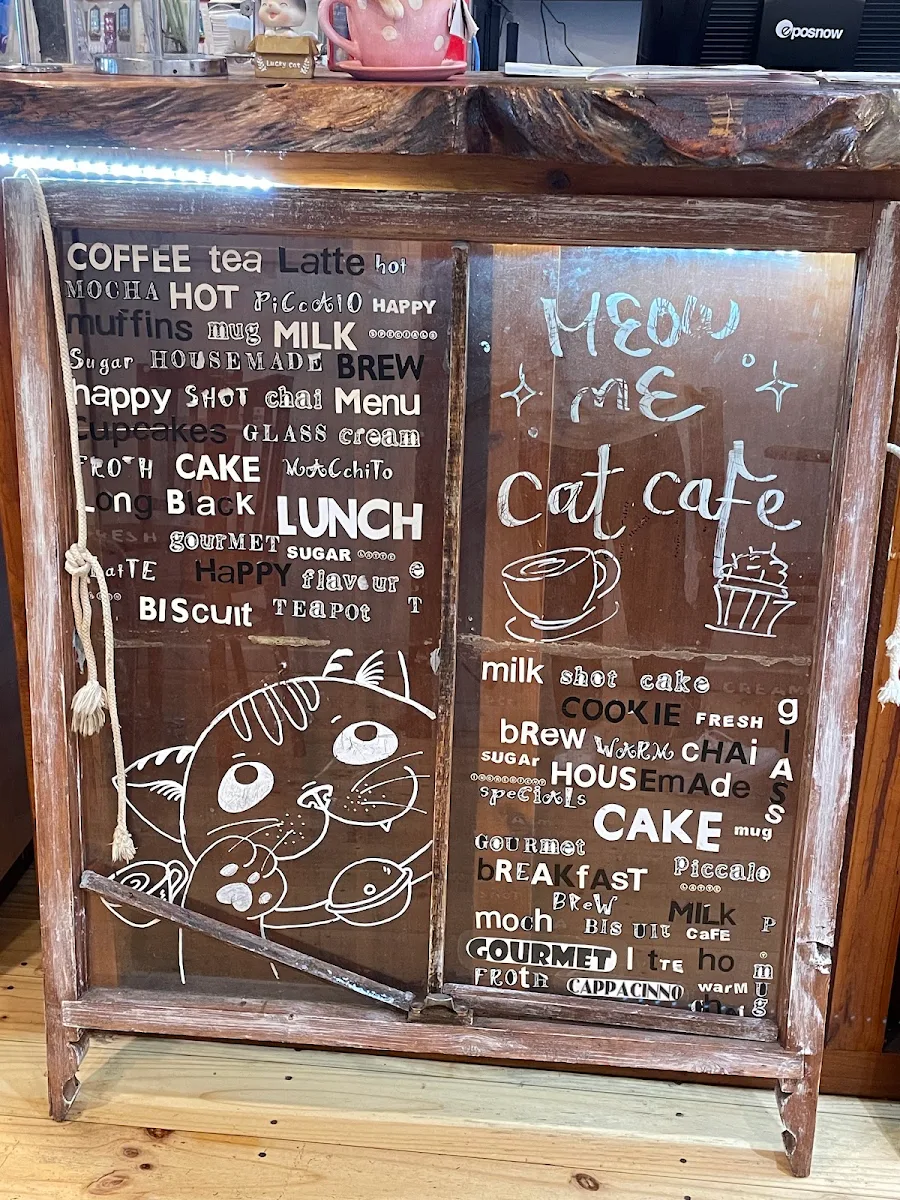 LUCKY CAT
eposnow
COFFEE tea Latte hot
MOCHA HOT PiCCAlO HAPPY
muffins mug MILK SPECIALS
Sugar HOUSEMADE BREW
happy SHOT chai Menu
Cupcakes GLASS cream
FROTH CAKE MACchiTo
Long Black LUNCH
FRESH gourMET SUGAR
LatTE HaPPY flavour e
BIScuit TEAPOT T
MEOW
ME
Cat cafe
milk shot cake CREAM
COOKIE FRESH
bRew WARM cHAi
SUGAr HOUSEmAde
speCiALs
CAKE mug
glASS
GOURMet
bREAKfAsT Piccalo
BReW
moch BIS UIt MILK P
CaFE
GOURMET l tTE ho
FROTH CAPPACINNO warM
chai
mug